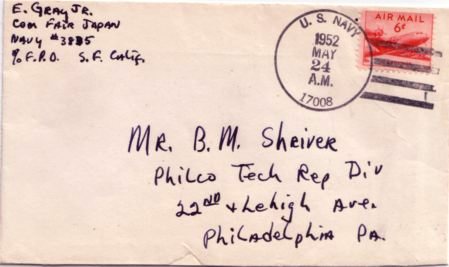 E. Gray Jr.
Com Fair Japan
Navy #3885
% F.P.O. S. F. Calif.
U. S. NAVY
1952
MAY
24
A.M.
17008
AIR MAIL
6¢
Mr. B. M. Shriver
Philco Tech Rep Div
22ND & Lehigh Ave.
Philadelphia Pa.